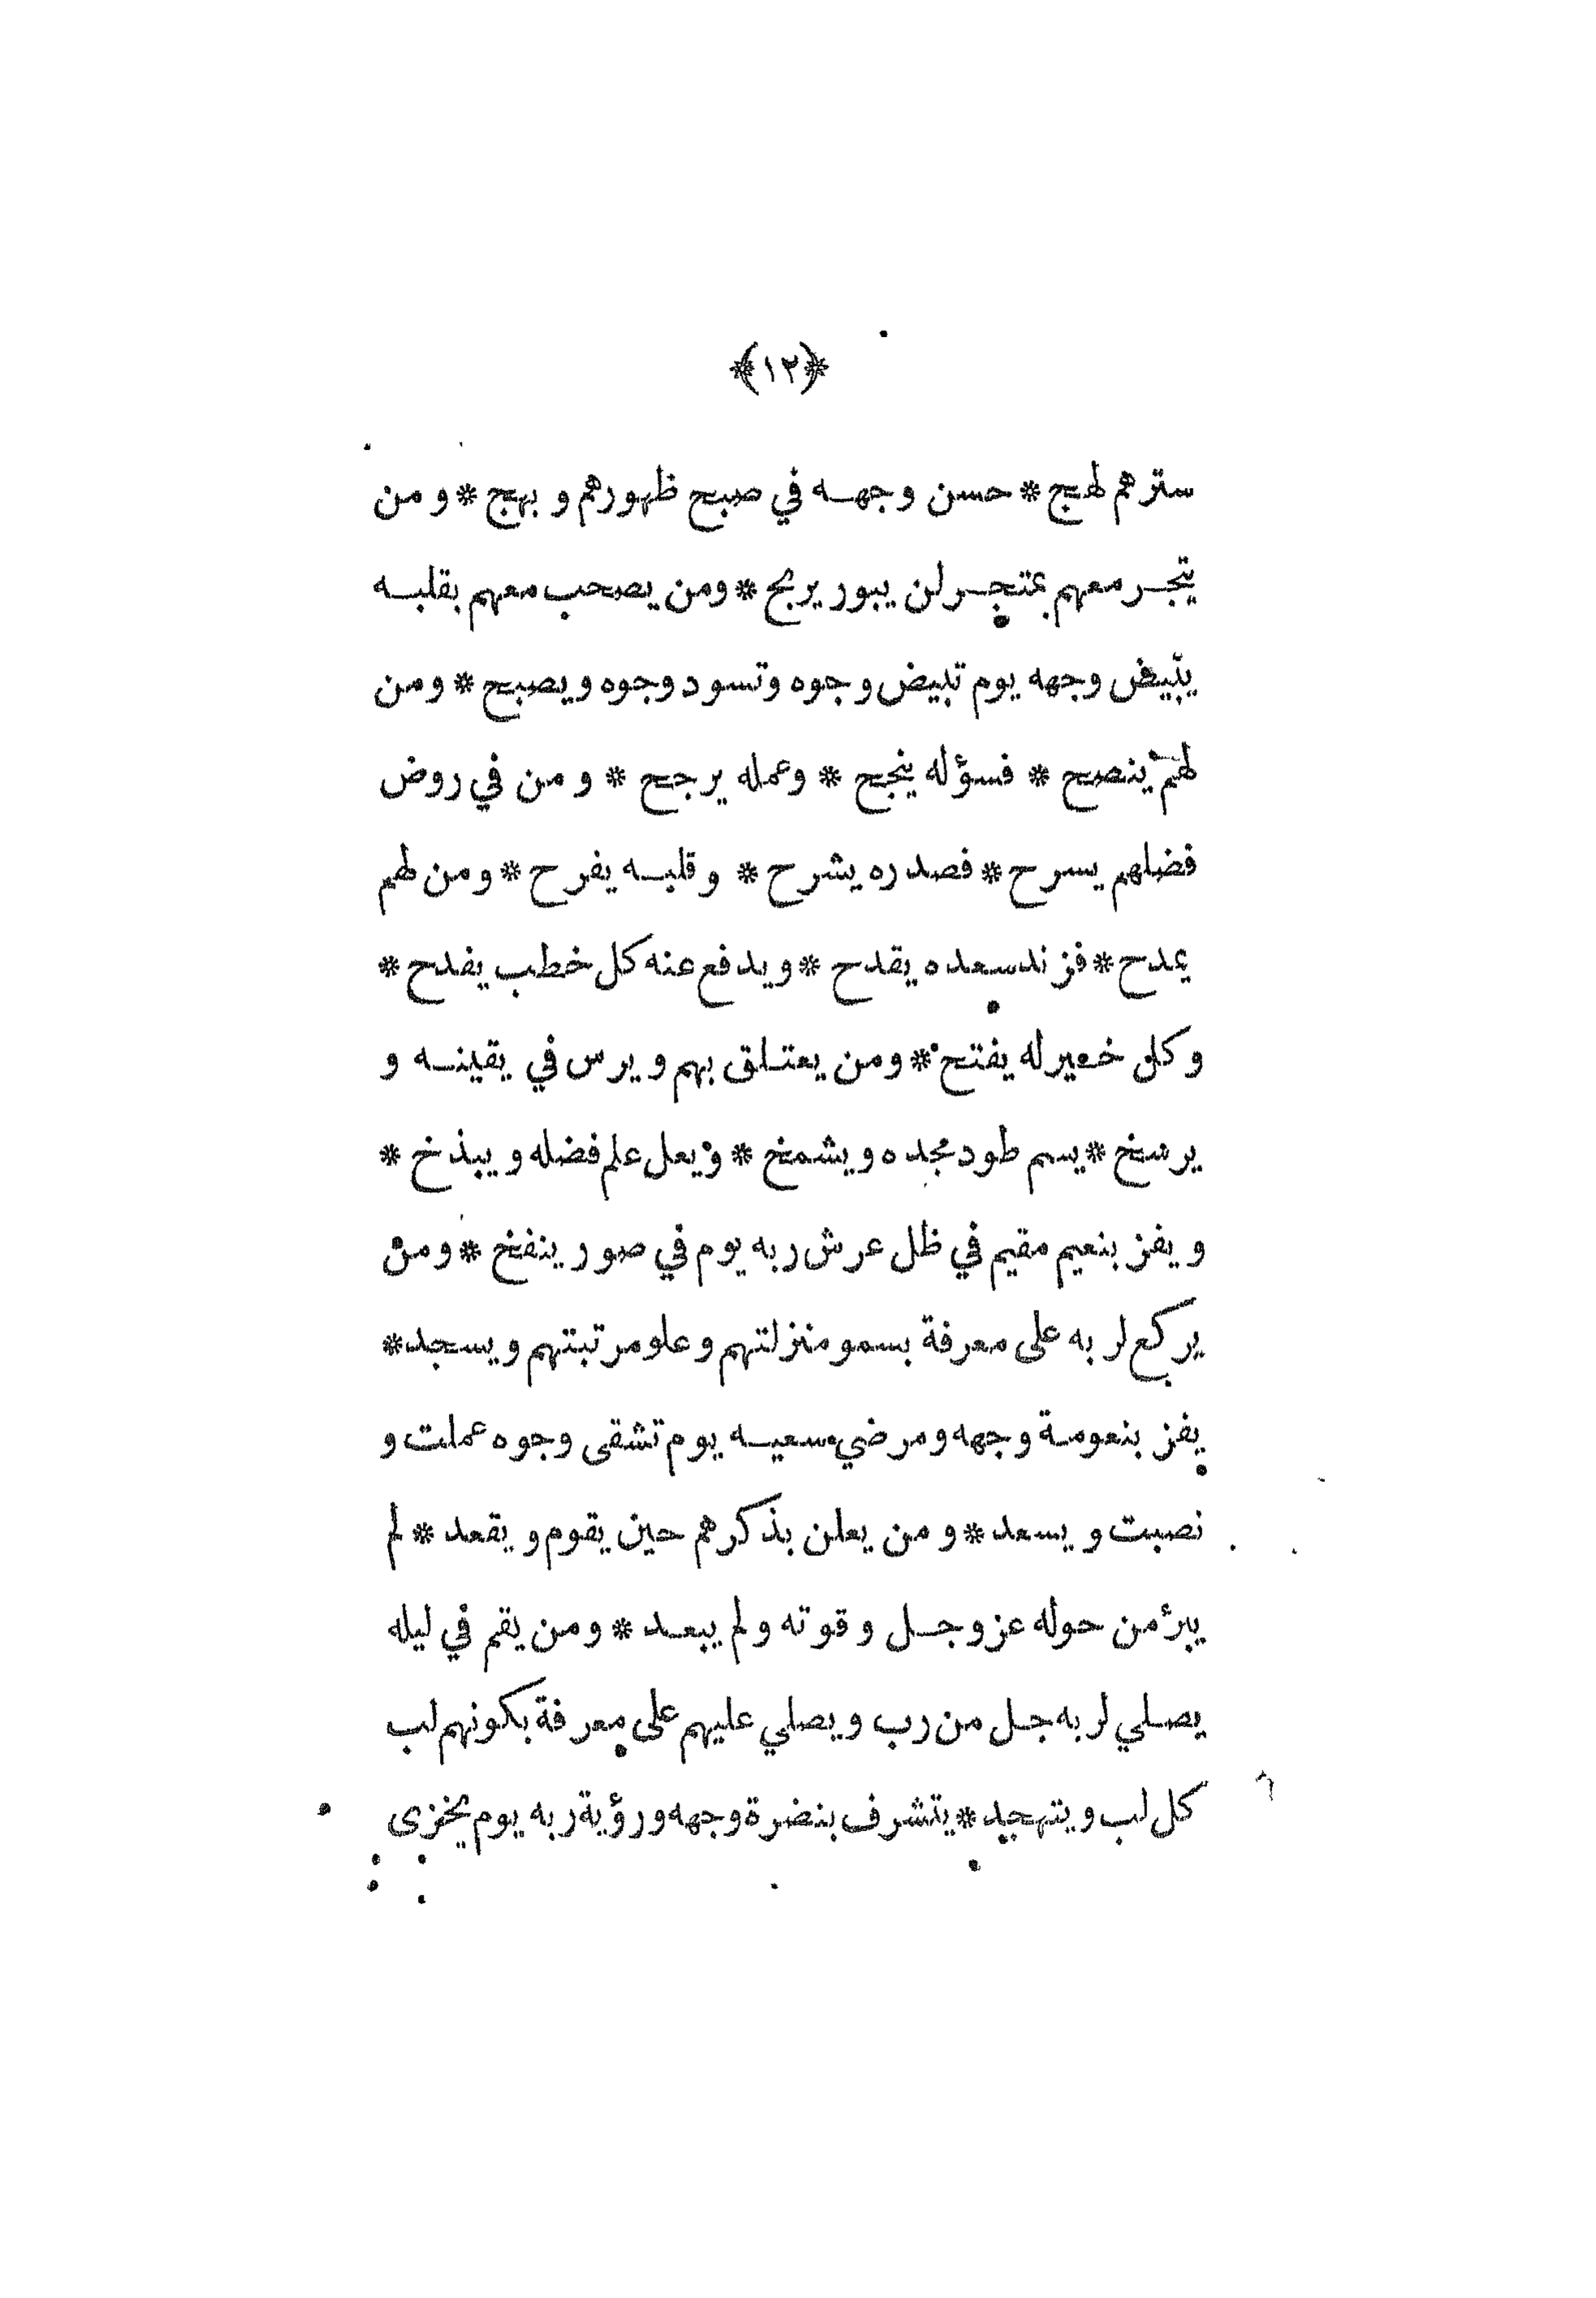 ﴿١٢﴾
سترهم لهج * حسن وجهه في صبح ظهورهم وبهج * ومن
يتجر معهم بمتجر لن يبور يربح * ومن يصحب معهم بقلبه
يبيض وجهه يوم تبيض وجوه وتسود وجوه ويصبح * ومن
لهم ينصح * فسؤله ينجح * وعمله يرجح * ومن في روض
فضلهم يسرح * فصدره يشرح * وقلبه يفرح * ومن لهم
يمدح * فزند سعده يقدح * ويدفع عنه كل خطب يفدح *
وكل خير له يفتح * ومن يعتلق بهم ويرس في يقينه و
يرسخ * يسم طود مجده ويشمخ * ويعل علم فضله ويبذخ *
ويفز بنعيم مقيم في ظل عرش ربه يوم في صور ينفخ * ومن
يركع لربه على معرفة بسمو منزلتهم وعلو مرتبتهم ويسجد *
يفز بنعومة وجهه ومرضي سعيه يوم تشقى وجوه عملت و
نصبت ويسعد * ومن يعلن بذكرهم حين يقوم ويقعد * لم
يبرؤ من حوله عز وجل وقوته ولم يبعد * ومن يقم في ليله
يصلي لربه جل من رب ويصلي عليهم على معرفة بكونهم لب
كل لب ويتهجد * يتشرف بنضرة وجهه ورؤية ربه يوم يخزى